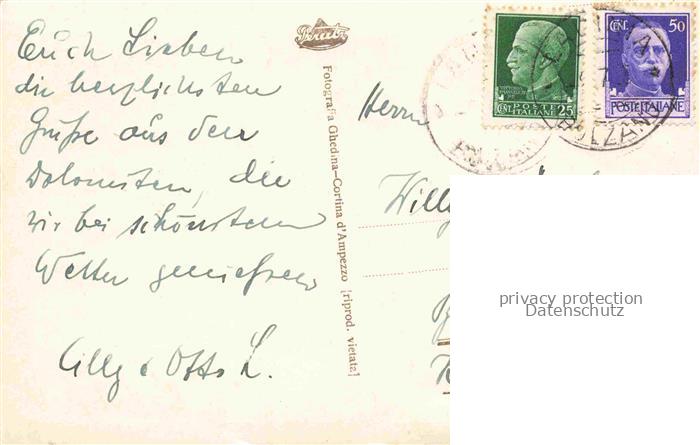 Euch Lieben
die herzlichsten
Grüße aus den
Dolomiten, die
wir bei schönstem
Wetter genießen
Cilly & Otto L.
Fotografia Ghedina-Cortina d'Ampezzo [riprod. vietata]
Herrn
Willy
CENT. POSTE ITALIANE 25
CENT. 50
POSTE ITALIANE
BOLZANO
privacy protection
Datenschutz